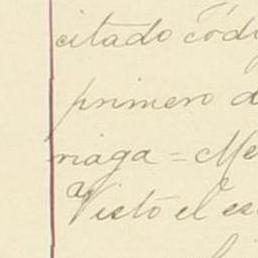 citado códi
primero d
riaga = Me
Visto el es